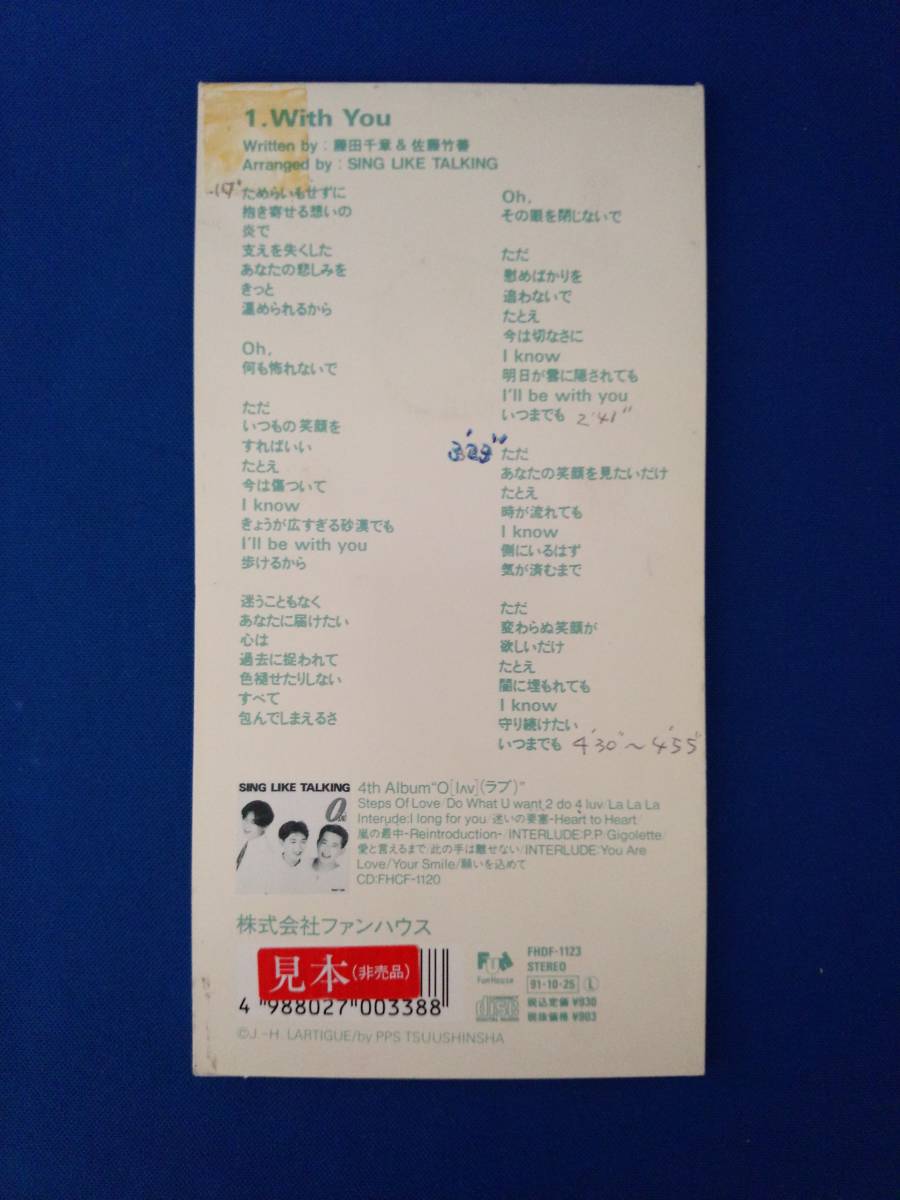 1.With You
Written by : 藤田千章 & 佐藤竹善
Arranged by : SING LIKE TALKING
ためらいもせずに
抱き寄せる想いの
炎で
支えを失くした
あなたの悲しみを
きっと
温められるから
Oh,
何も怖れないで
ただ
いつもの笑顔を
すればいい
たとえ
今は傷ついて
I know
きょうが広すぎる砂漠でも
I'll be with you
歩けるから
迷うこともなく
あなたに届けたい
心は
過去に捉われて
色褪せたりしない
すべて
包んでしまえるさ
Oh,
その眼を閉じないで
ただ
慰めばかりを
追わないで
たとえ
今は切なさに
I know
明日が雲に隠されても
I'll be with you
いつまでも 2'41"
3'29"
ただ
あなたの笑顔を見たいだけ
たとえ
時が流れても
I know
側にいるはず
気が済むまで
ただ
変わらぬ笑顔が
欲しいだけ
たとえ
闇に埋もれても
I know
守り続けたい
いつまでも 4'30"～4'55"
SING LIKE TALKING
4th Album"O[lʌv](ラブ)"
Steps Of Love/Do What U want 2 do 4 luv/La La La
Interude:I long for you/迷いの要塞-Heart to Heart/
嵐の最中-Reintroduction-/INTERLUDE:P.P/Gigolette/
愛と言えるまで/此の手は離せない/INTERLUDE:You Are
Love/Your Smile/願いを込めて
CD:FHCF-1120
株式会社ファンハウス
見本(非売品)
4 988027 003388
Fun House
FHDF-1123
STEREO
91·10·25 L
税込定価¥930
税抜価格¥903
©J.-H. LARTIGUE/by PPS TSUUSHINSHA